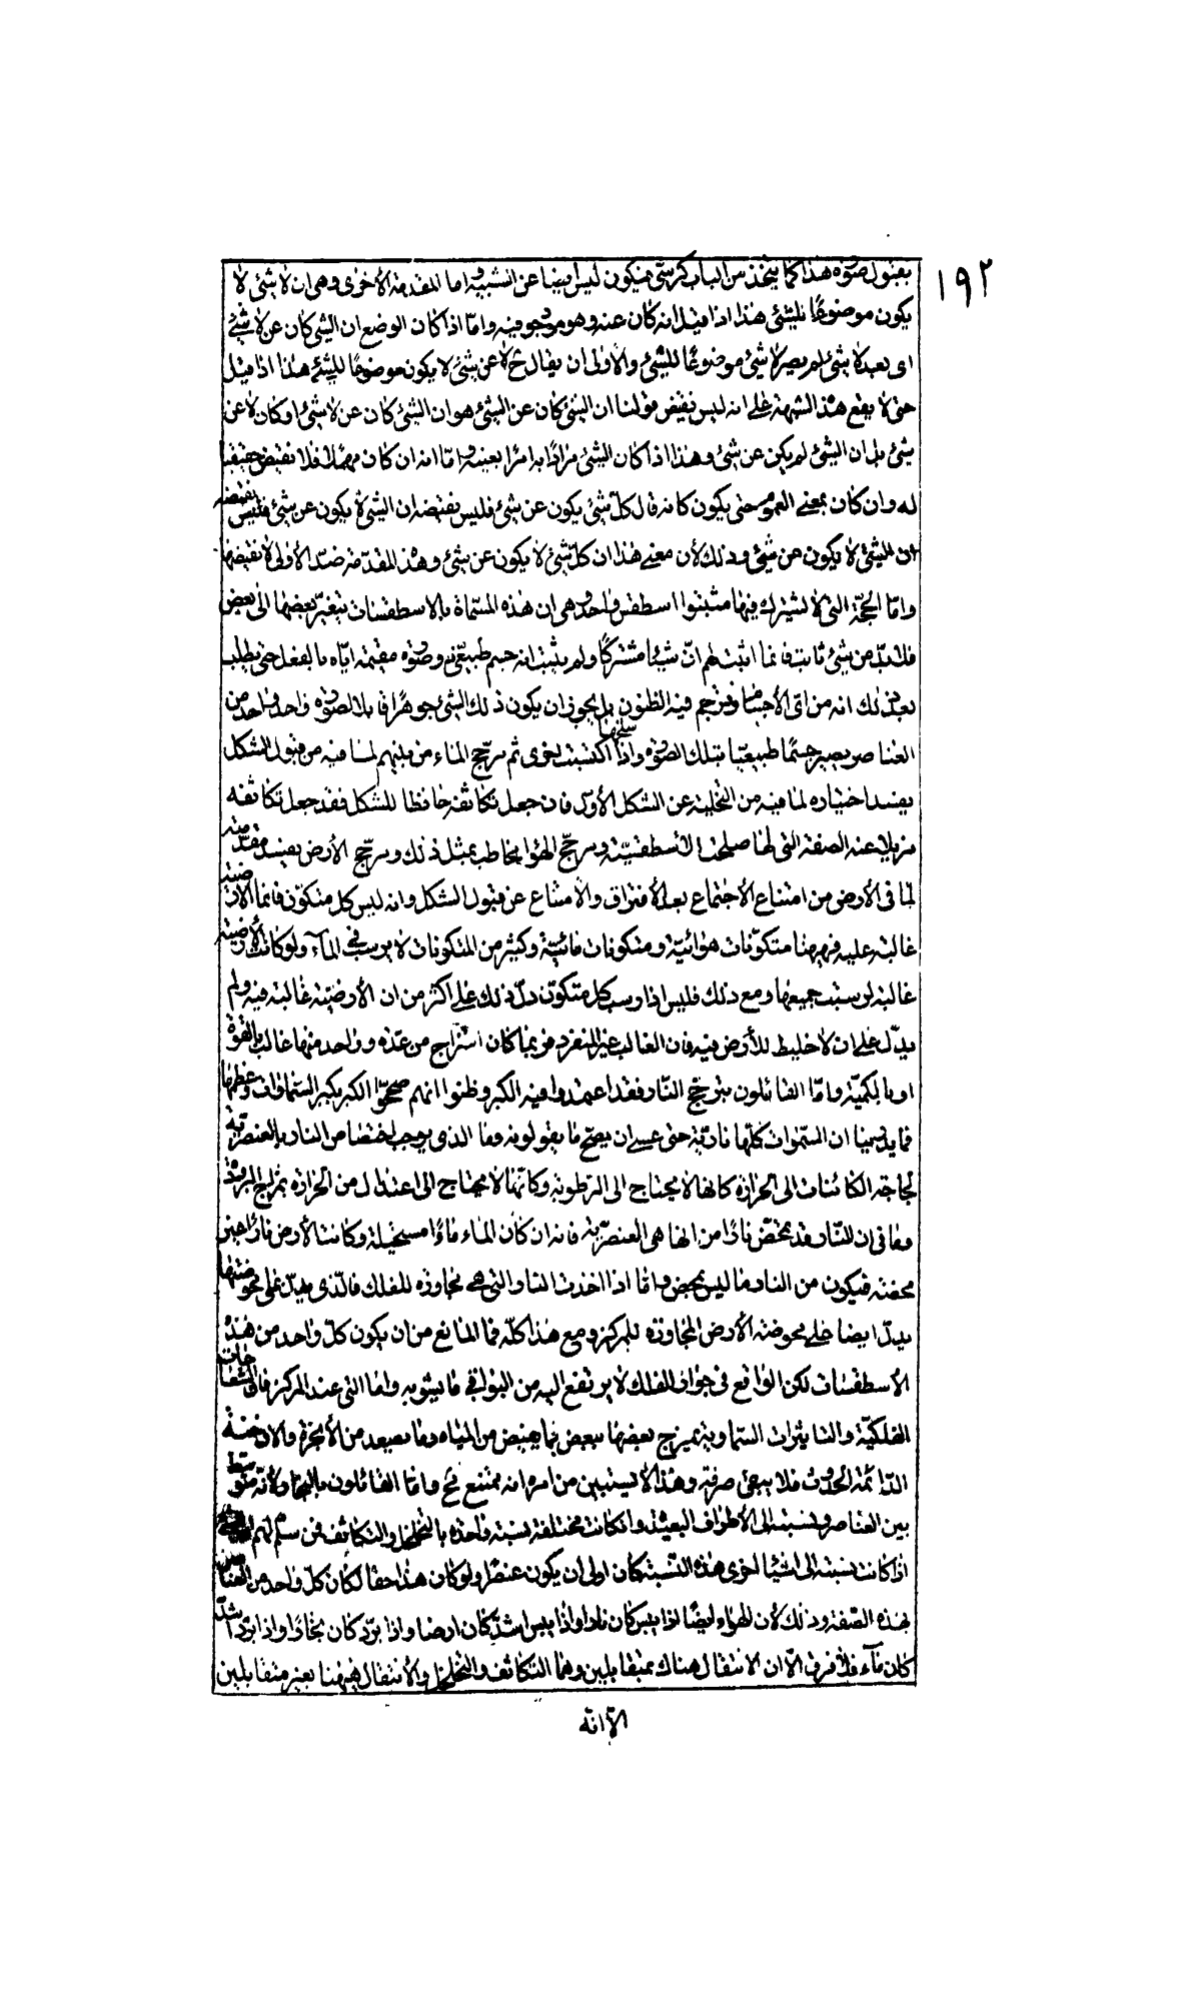 ١٩٢
بقبول صورة هذا كما يتخذ من الباب كرسى فيكون ليس ببينا عن الشبيه واما المقدمة الأخرى وهى ان لا شئ لا
يكون موضوعا للشئ هذا اذا قيل انه كان عنه وهو موجود فيه واما اذا كان الوضع ان الشئ كان عن لا شئ
اى بعد لا شئ لم يصر لا شئ موضوعا للشئ والأولى ان يقال ح لا عن شئ لا يكون موضوعا للشئ هذا اذا قيل
حتى لا يقع هذه الشبهة على انه ليس نقيض قولنا ان الشئ كان عن الشئ هو ان الشئ كان عن لا شئ او كان لا عن
شئ بل ان الشئ لم يكن عن شئ وهذا اذا كان الشئ مرادا به امرا بعينه واما انه ان كان مهملا فلا نقيض حقيقيا
له وان كان بمعنى العموم حتى يكون كانه قال كل شئ يكون عن شئ فليس نقيضه ان الشئ لا يكون عن شئ فليس نقيضه
ان الشئ لا يكون عن شئ وذلك لأن معنى هذا ان كل شئ لا يكون عن شئ وهذه المقدمة ضد الأولى لا نقيضها
واما الحجة التى لا تشترك فيها مثبتوا اسطقس واحد وهى ان هذه المسماة بالاسطقسات يتغير بعضها الى بعض
فلا بد من شئ ثابت فانما اثبت لهم ان شيئا مشتركا ولم يثبت انه جسم طبيعى ذو صورة مقيمة اياه بالفعل حتى يطلب
بعد ذلك انه من اى الأجسام وترجم فيه الظنون بل يجوز ان يكون ذلك الشئ جوهرا قابلا لصورة واحد واحد من
العناصر يصير جسما طبيعيا بتلك الصورة واذا سلخها اكتسبت اخرى ثم مرجح الماء من بينهم لما فيه من قبول الشكل
يفسد اختياره لما فيه من التخلية عن الشكل الأول فان جعل تكاثفه حافظا للشكل فقد جعل تكاثفه
مزيلا عنه الصفة التى لها صلحت الأسطقسية ومرجح الهواء يخاطب بمثل ذلك ومرجح الأرض يفسد مقدمته
لما فى الأرض من امتناع الأجتماع بعد الأفتراق والامتناع عن قبول الشكل وانه ليس كل متكون فانما الأرضية
غالبة عليه فههنا متكونات هوائية ومتكونات مائية وكثير من المتكونات لا يرسب فى الماء ولو كانت الأرضية
غالبة لرسبت جميعها ومع ذلك فليس اذا رسب كل متكون دل ذلك على اكثر من ان الأرضية غالبة فيه ولم
يدل على ان لا خليط للأرض فيه فان الغالب غير المنفرد فربما كان امتزاج من عدة وواحد منها غالب بالقوة
او بالكمية واما القائلون بترجيح النار فقد اعتمدوا فيه الكبر وظنوا انهم صححوا الكبر بكبر السماوات وعظمها
فما يدرينا ان السموات كلها نارية حتى عسى ان يصح ما يقولونه وما الذى يوجب اختصاص النار بالعنصرية
لحاجة الكائنات الى الحرارة كانها لا يحتاج الى الرطوبة وكانها لا يحتاج الى اعتدال من الحرارة بمزاج البرودة
وما فى ان للنار قد تمحض نارا من انها هى العنصرية فانه ان كان الماء نارا مستحيلة وكانت الأرض نارا غير
محضة فيكون من النار ما ليس بمحض واما اذا اخذت النار التى هى مجاورة للفلك فالذى يدل على محوضتها
يدل ايضا على محوضة الأرض المجاورة للمركز ومع هذا كله فما المانع من ان يكون كل واحد من هذه
الأسطقسات لكن الواقع فى جوار الفلك لا يرتفع اليه من البواقى ما يشوبه واما التى عند المركز فان الشعاعات
الفلكية والتاثيرات السماوية تمزج بعضها ببعض بما يفيض من المياه وما يصعد من الأبخرة والادخنة
الدائمة الحدوث فلا يبقى صرفة وهذا لا يستبين من امره انه ممتنع ح واما القائلون بالبخار ولانه متوسط
بين العناصر ونسبته الى الأطراف البعيدة وان كانت مختلفة نسبة واحدة بالتخلخل والتكاثف فمن سلم لهم
اذا كانت نسبته الى اشياء اخرى هذه النسبة كان اولى ان يكون عنصرا ولو كان هذا حقا لكان كل واحد من العناصر
بهذه الصفة وذلك لأن الهواء ايضا اذا يبس كان نارا واذا يبس اشد كان ارضا واذا برد كان بخارا واذا برد اشد
كان ماء فلا فرق الا ان الانتقال هناك بمتقابلين وهما التكاثف والتخلخل والأنتقال ههنا بغير متقابلين
الا انه